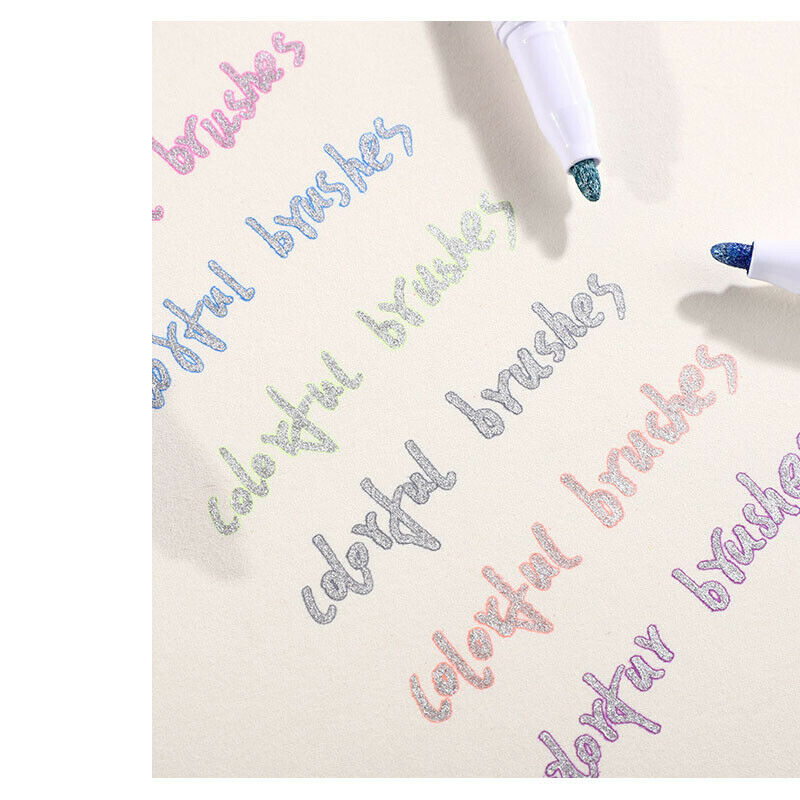 brushes
orful brushes
colorful brushes
colorful brushes
colorful brushes
olorful brushes